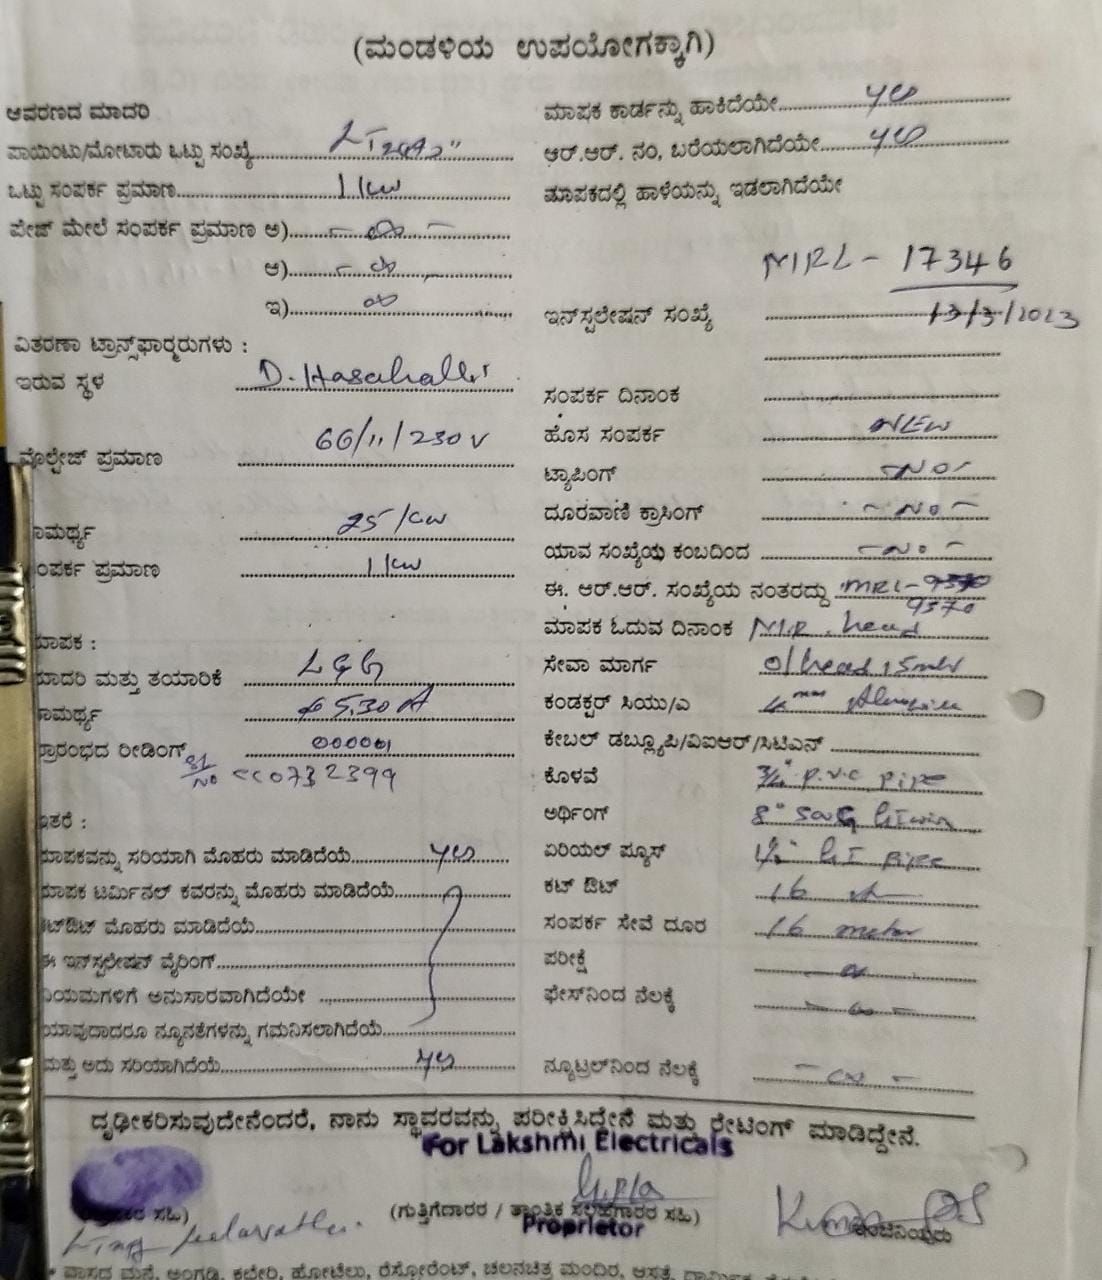 (ಮಂಡಳಿಯ ಉಪಯೋಗಕ್ಕಾಗಿ)
ಆವರಣದ ಮಾದರಿ
ಪಾಯಿಂಟು/ಮೋಟಾರು ಒಟ್ಟು ಸಂಖ್ಯೆ
ಒಟ್ಟು ಸಂಪರ್ಕ ಪ್ರಮಾಣ 1 kw
ಪೇಜ್ ಮೇಲೆ ಸಂಪರ್ಕ ಪ್ರಮಾಣ ಅ)
ಆ)
ಇ)
ವಿತರಣಾ ಟ್ರಾನ್ಸ್‌ಫಾರ್‍ಮರುಗಳು :
ಇರುವ ಸ್ಥಳ D. Hasahalli
ವೊಲ್ಟೇಜ್ ಪ್ರಮಾಣ 66/11/230V
ಾಮರ್ಥ್ಯ 25/kw
ಂಪರ್ಕ ಪ್ರಮಾಣ 1 kw
ಮಾಪಕ :
ಮಾದರಿ ಮತ್ತು ತಯಾರಿಕೆ L&G
ಾಮರ್ಥ್ಯ 5.30 A
ಪ್ರಾರಂಭದ ರೀಡಿಂಗ್ 000001
Sl No CC0732399
ಇತರೆ :
ಮಾಪಕವನ್ನು ಸರಿಯಾಗಿ ಮೊಹರು ಮಾಡಿದೆಯೆ yes
ಮಾಪಕ ಟರ್ಮಿನಲ್ ಕವರನ್ನು ಮೊಹರು ಮಾಡಿದೆಯೆ
ಕಟ್‌ಔಟ್ ಮೊಹರು ಮಾಡಿದೆಯೆ
ಈ ಇನ್‌ಸ್ಟಲೇಷನ್ ವೈರಿಂಗ್
ನಿಯಮಗಳಿಗೆ ಅನುಸಾರವಾಗಿದೆಯೇ
ಯಾವುದಾದರೂ ನ್ಯೂನತೆಗಳನ್ನು ಗಮನಿಸಲಾಗಿದೆಯೆ
ಮತ್ತು ಅದು ಸರಿಯಾಗಿದೆಯೆ yes
ಮಾಪಕ ಕಾರ್ಡನ್ನು ಹಾಕಿದೆಯೇ yes
ಆರ್.ಆರ್. ನಂ, ಬರೆಯಲಾಗಿದೆಯೇ yes
ಮಾಪಕದಲ್ಲಿ ಹಾಳೆಯನ್ನು ಇಡಲಾಗಿದೆಯೇ
17346
ಇನ್‌ಸ್ಟಲೇಶನ್ ಸಂಖ್ಯೆ 13/3/2023
ಸಂಪರ್ಕ ದಿನಾಂಕ
ಹೊಸ ಸಂಪರ್ಕ NEW
ಟ್ಯಾಪಿಂಗ್ -NO-
ದೂರವಾಣಿ ಕ್ರಾಸಿಂಗ್ -NO-
ಯಾವ ಸಂಖ್ಯೆಯ ಕಂಬದಿಂದ -NO-
ಈ. ಆರ್.ಆರ್. ಸಂಖ್ಯೆಯ ನಂತರದ್ದು MRL-9570
9570
ಮಾಪಕ ಓದುವ ದಿನಾಂಕ
ಸೇವಾ ಮಾರ್ಗ o/head
ಕಂಡಕ್ಟರ್ ಸಿಯು/ಎ
ಕೇಬಲ್ ಡಬ್ಲ್ಯೂಪಿ/ವಿಐಆರ್/ಸಿಟಿಎಸ್
ಕೊಳವೆ 3/4" P.V.C. Pipe
ಅರ್ಥಿಂಗ್ 8" SWG
ಏರಿಯಲ್ ಫ್ಯೂಸ್ 1½" GI Pipe
ಕಟ್ ಔಟ್ 16
ಸಂಪರ್ಕ ಸೇವೆ ದೂರ 16 meter
ಪರೀಕ್ಷೆ
ಫೇಸ್‌ನಿಂದ ನೆಲಕ್ಕೆ
ನ್ಯೂಟ್ರಲ್‌ನಿಂದ ನೆಲಕ್ಕೆ
ದೃಢೀಕರಿಸುವುದೇನೆಂದರೆ, ನಾನು ಸ್ಥಾವರವನ್ನು ಪರೀಕ್ಷಿಸಿದ್ದೇನೆ ಮತ್ತು ರೇಟಿಂಗ್ ಮಾಡಿದ್ದೇನೆ.
For Lakshmi Electricals
(ಗುತ್ತಿಗೆದಾರರ / ತಾಂತ್ರಿಕ ಸಲಹಗಾರರ ಸಹಿ)
Proprietor
ಇಂಜಿನಿಯರು
ವಾಸದ ಮನೆ, ಅಂಗಡಿ, ಕಛೇರಿ, ಹೋಟೆಲು, ರೆಸ್ಟೋರೆಂಟ್, ಚಲನಚಿತ್ರ ಮಂದಿರ, ಆಸ್ಪತ್ರೆ,